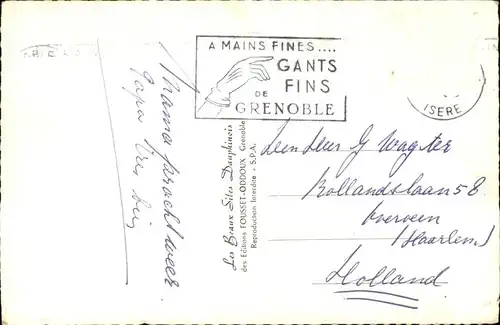 A MAINS FINES....
GANTS
FINS
DE
GRENOBLE
ISERE
Mama
prachtweer
Papa très bien
Les Beaux Sites Dauphinois
des Editions FOUSSET-ODDOUX, Grenoble
Reproduction Interdite - S.P.A.
G Wagter
Rollandslaan 58
Overveen
(Haarlem)
Holland